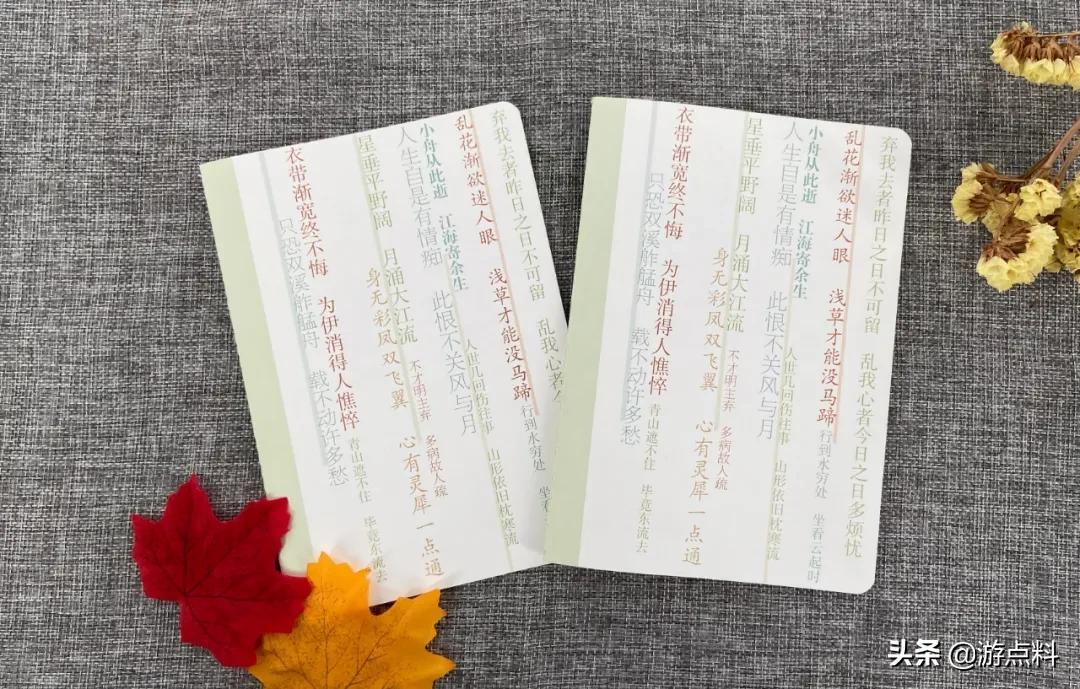 弃我去者昨日之日不可留 乱我心者
乱花渐欲迷人眼 浅草才能没马蹄
行到水穷处 坐看
小舟从此逝 江海寄余生
人世几回伤往事 山形依旧枕寒流
人生自是有情痴 此恨不关风与月
星垂平野阔 月涌大江流
不才明主弃 多病故人疏
身无彩凤双飞翼 心有灵犀一点通
衣带渐宽终不悔 为伊消得人憔悴
青山遮不住 毕竟东流去
只恐双溪舴艋舟 载不动许多愁
弃我去者昨日之日不可留 乱我心者今日之日多烦忧
乱花渐欲迷人眼 浅草才能没马蹄
行到水穷处 坐看云起时
小舟从此逝 江海寄余生
人世几回伤往事 山形依旧枕寒流
人生自是有情痴 此恨不关风与月
星垂平野阔 月涌大江流
不才明主弃 多病故人疏
身无彩凤双飞翼 心有灵犀一点通
衣带渐宽终不悔 为伊消得人憔悴
青山遮不住 毕竟东流去
只恐双溪舴艋舟 载不动许多愁
头条 @游点料